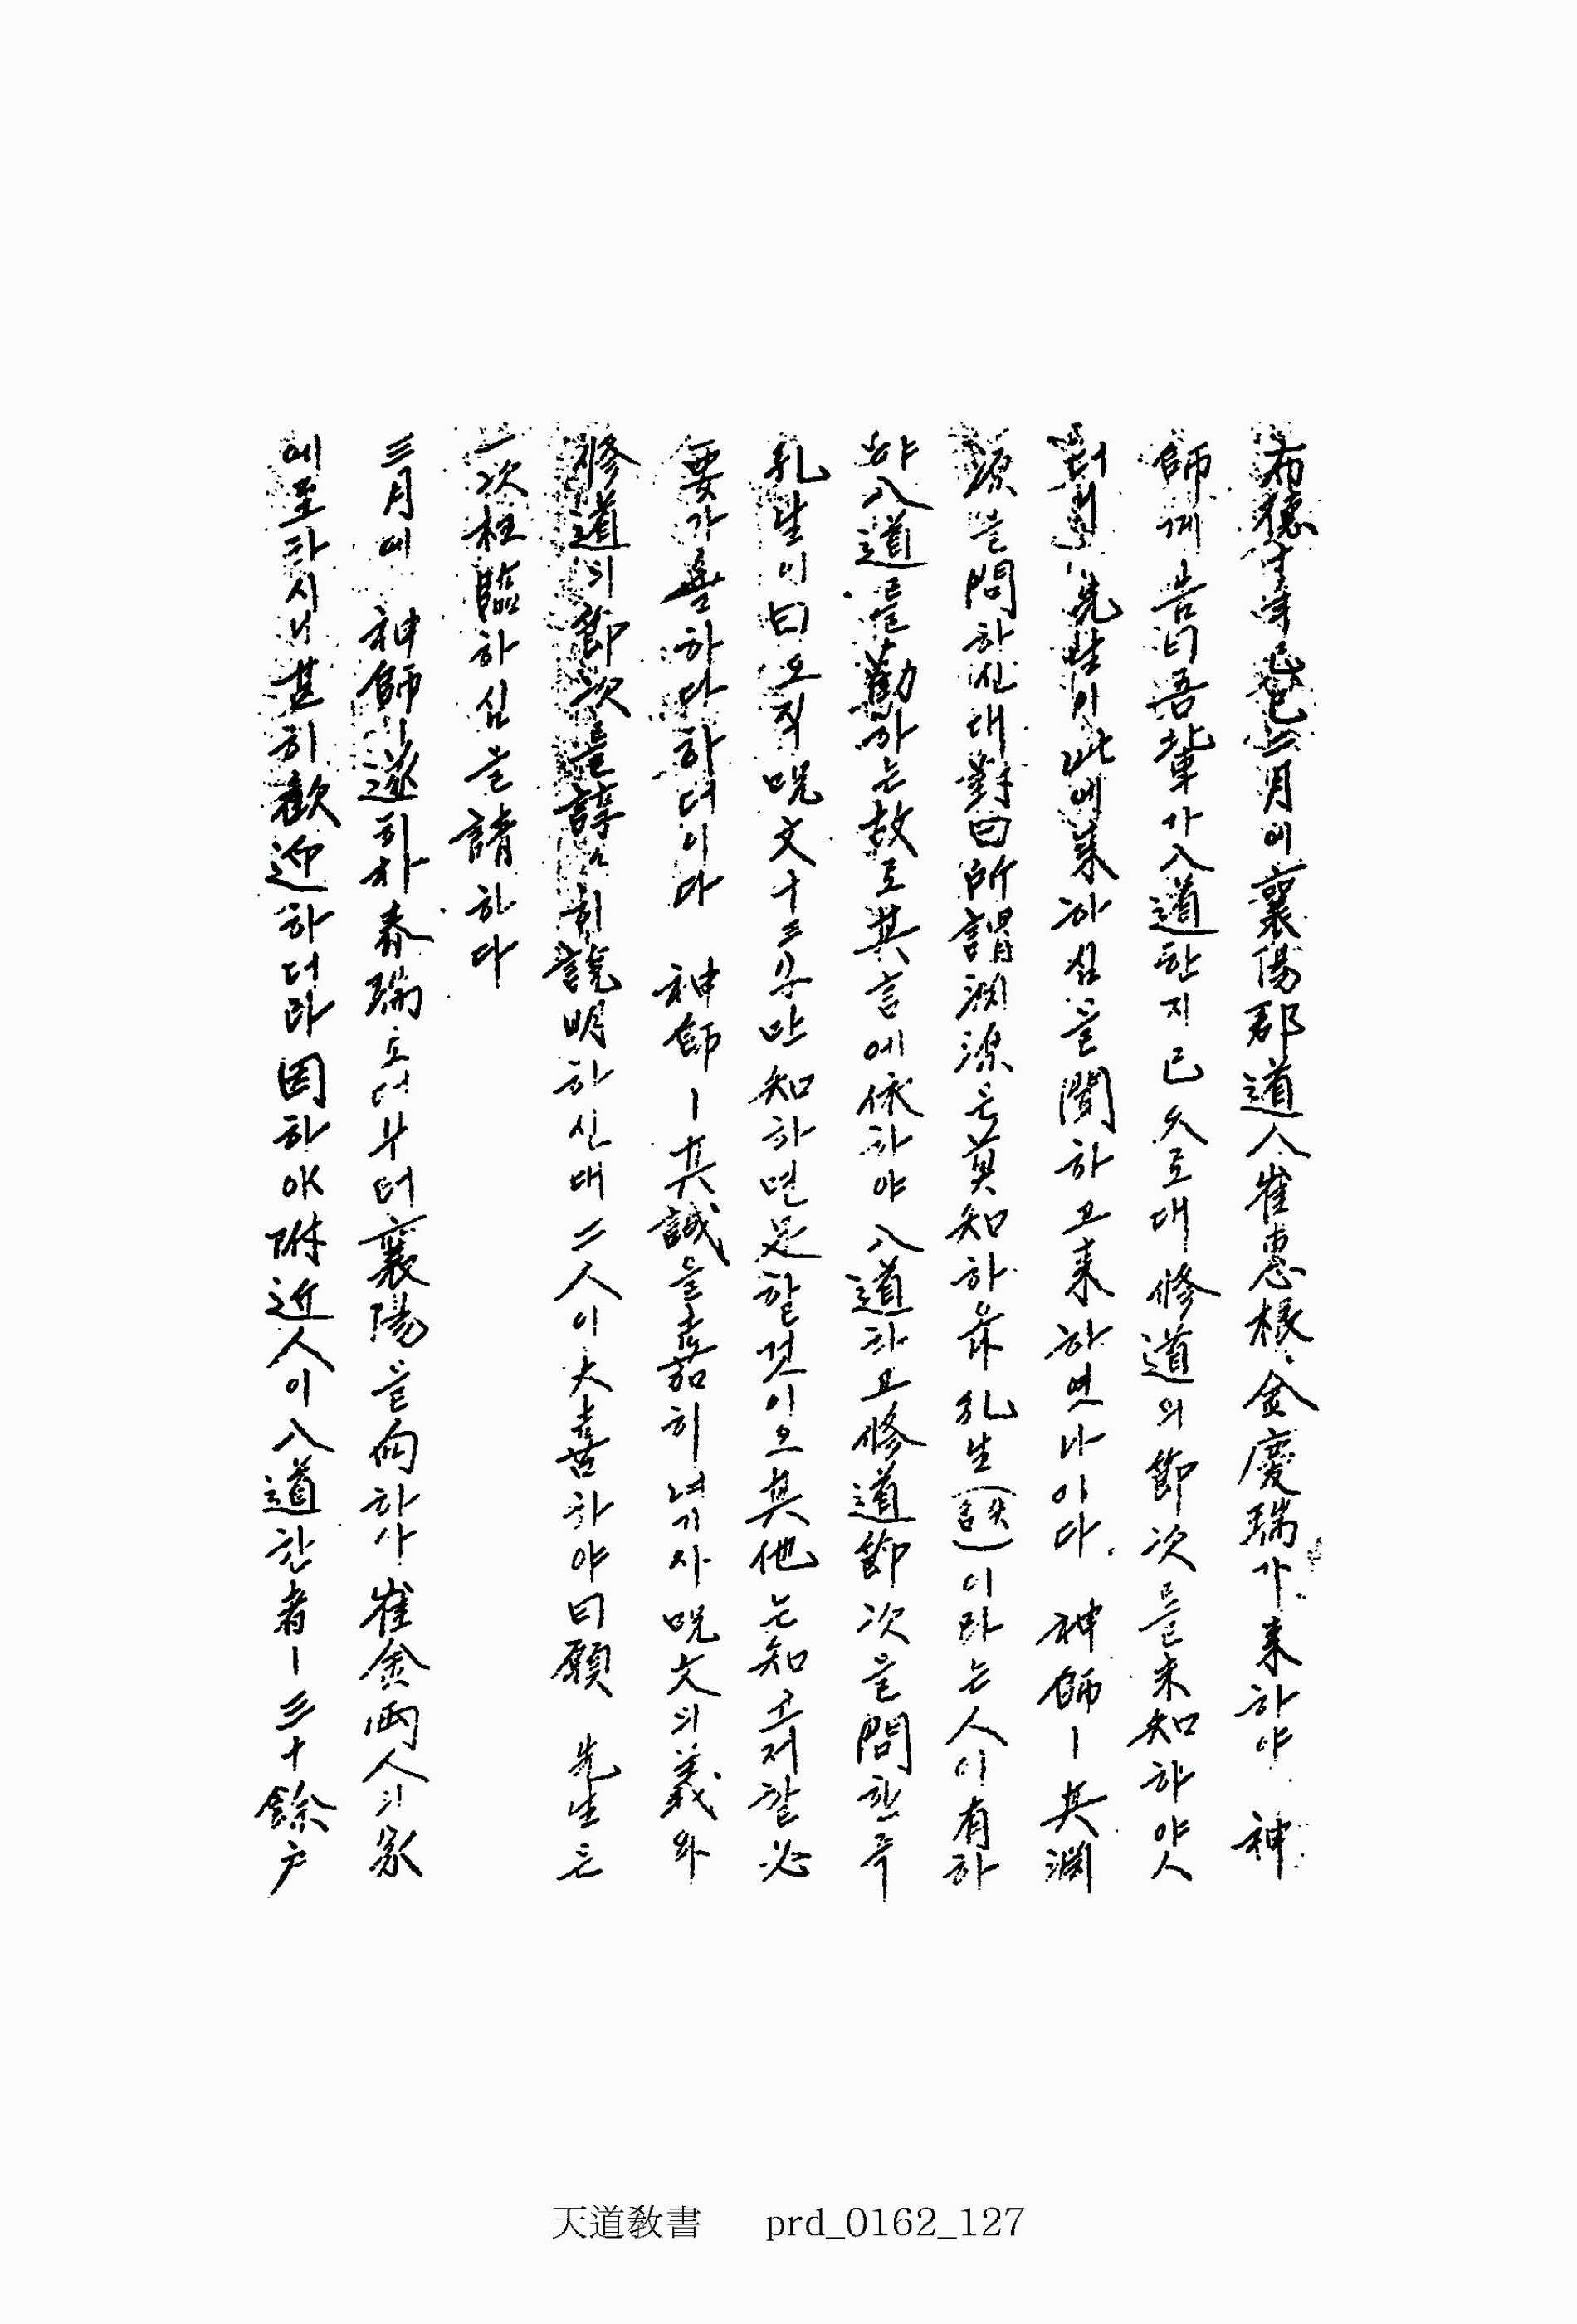 布德十年己巳二月에襄陽郡道人崔惠根、金慶瑞가來하야 神
師께告曰吾輩가入道한지已久로대修道의節次를未知하야人
先生이此에來하심을聞하고來하엿나이다. 神師ㅣ其淵
源을問하신대對曰所謂淵源은莫知하옵고孔生(名失)이라는人이有하
야入道를勸하는故로其言에依하야入道하고修道節次을問한즉
孔生이曰오직呪文十三字만知하면足할것이오其他는知고저할必
要가無하다하더이다 神師ㅣ其誠을嘉히녀기사呪文의義와
修道의節次를諄々히說明하신대二人이大喜하야曰願 先生은
一次枉臨하심을請하다
三月에 神師ㅣ遂히朴春瑞로더부터襄陽을向하사崔金兩人의家
에至하시니甚히歡迎하더라因하야附近人이入道한者ㅣ三十餘戶
天道敎書 prd_0162_127